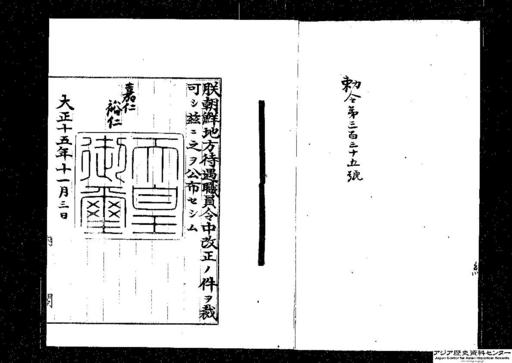 勅令第三百三十五號
朕朝鮮地方待遇職員令中改正ノ件ヲ裁
可シ玆ニ之ヲ公布セシム
嘉仁
裕仁
天皇御璽
大正十五年十一月三日
内閣
アジア歴史資料センター
Japan Center for Asian Historical Records